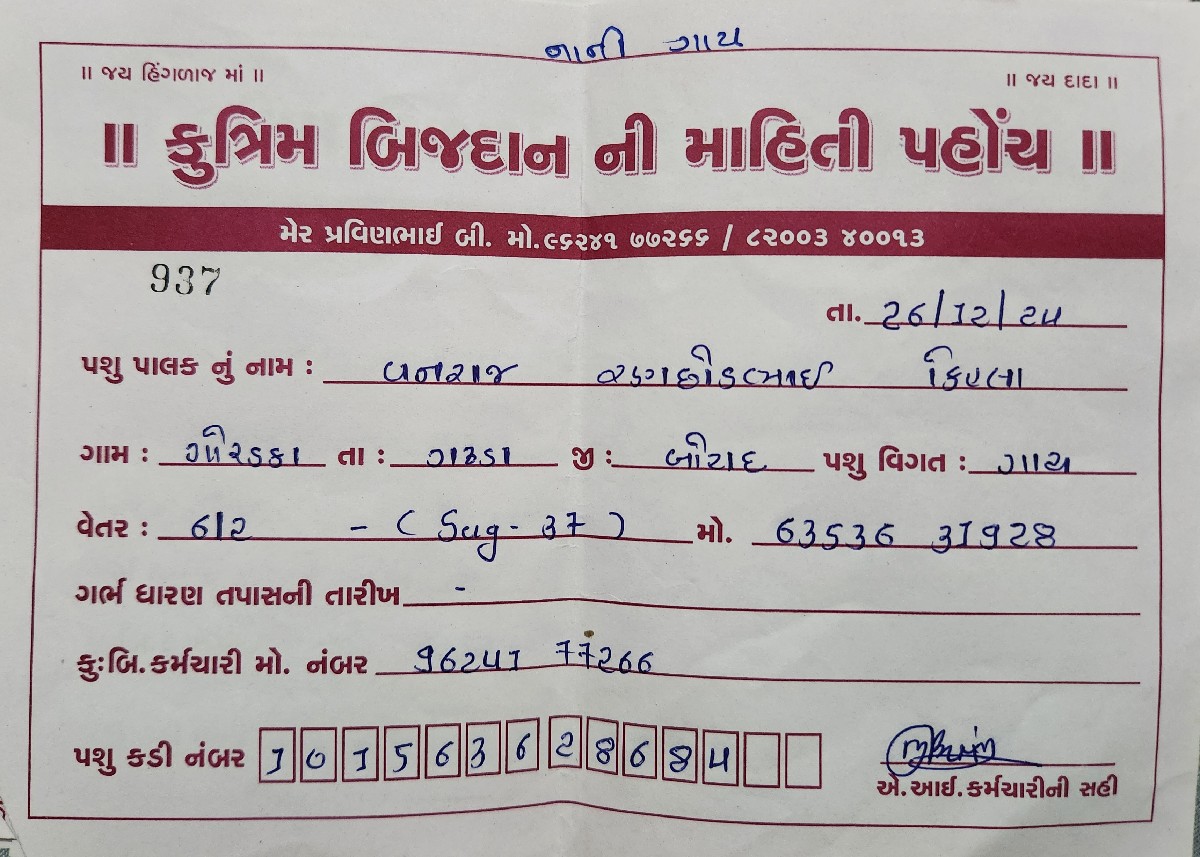 નાની ગાય
॥ જય હિંગળાજ માં ॥ ॥ જય દાદા ॥
॥ કુત્રિમ બિજદાન ની માહિતી પહોંચ ॥
મેર પ્રવિણભાઈ બી. મો.૯૬૨૪૧ ૭૭૨૬૬ / ૮૨૦૦૩ ૪૦૦૧૩
937
તા. 26/12/24
પશુ પાલક નું નામ : ધનરાજ રણછોડભાઈ
ગામ : ગોરડકા તા : ગઢડા જી : બોટાદ પશુ વિગત : ગાય
વેતર : 6/2 - ( Sag - 37 ) મો. 63536 31928
ગર્ભ ધારણ તપાસની તારીખ -
કુઃબિ.કર્મચારી મો. નંબર 96241 77266
પશુ કડી નંબર 101563628684
એ.આઈ.કર્મચારીની સહી